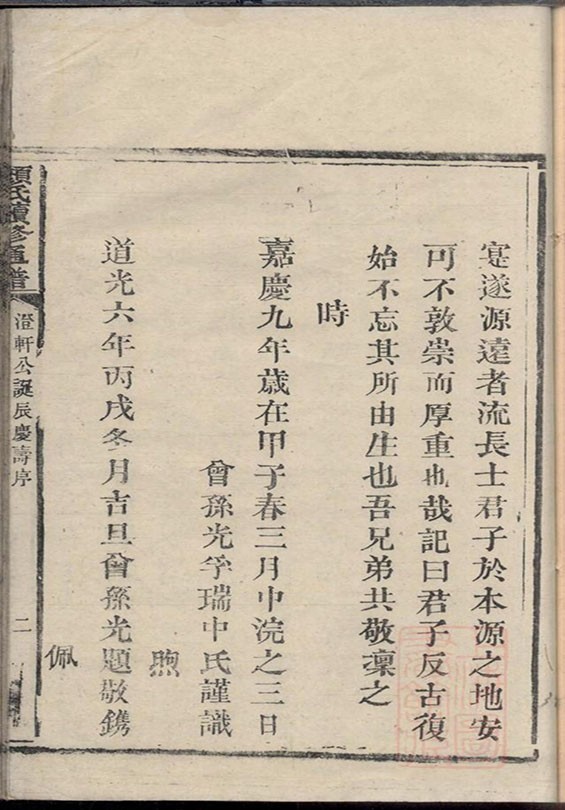 寔遂源遠者流長士君子於本源之地安
可不敦崇而厚重也哉記曰君子反古復
始不忘其所由生也吾兄弟共敬凜之
時
嘉慶九年歲在甲子春三月中浣之三日
曾孫光孚瑞中氏謹識
煦
道光六年丙戌冬月吉旦曾孫光題敬鐫
佩
氏續修通譜
澄軒公誕辰慶壽序
二